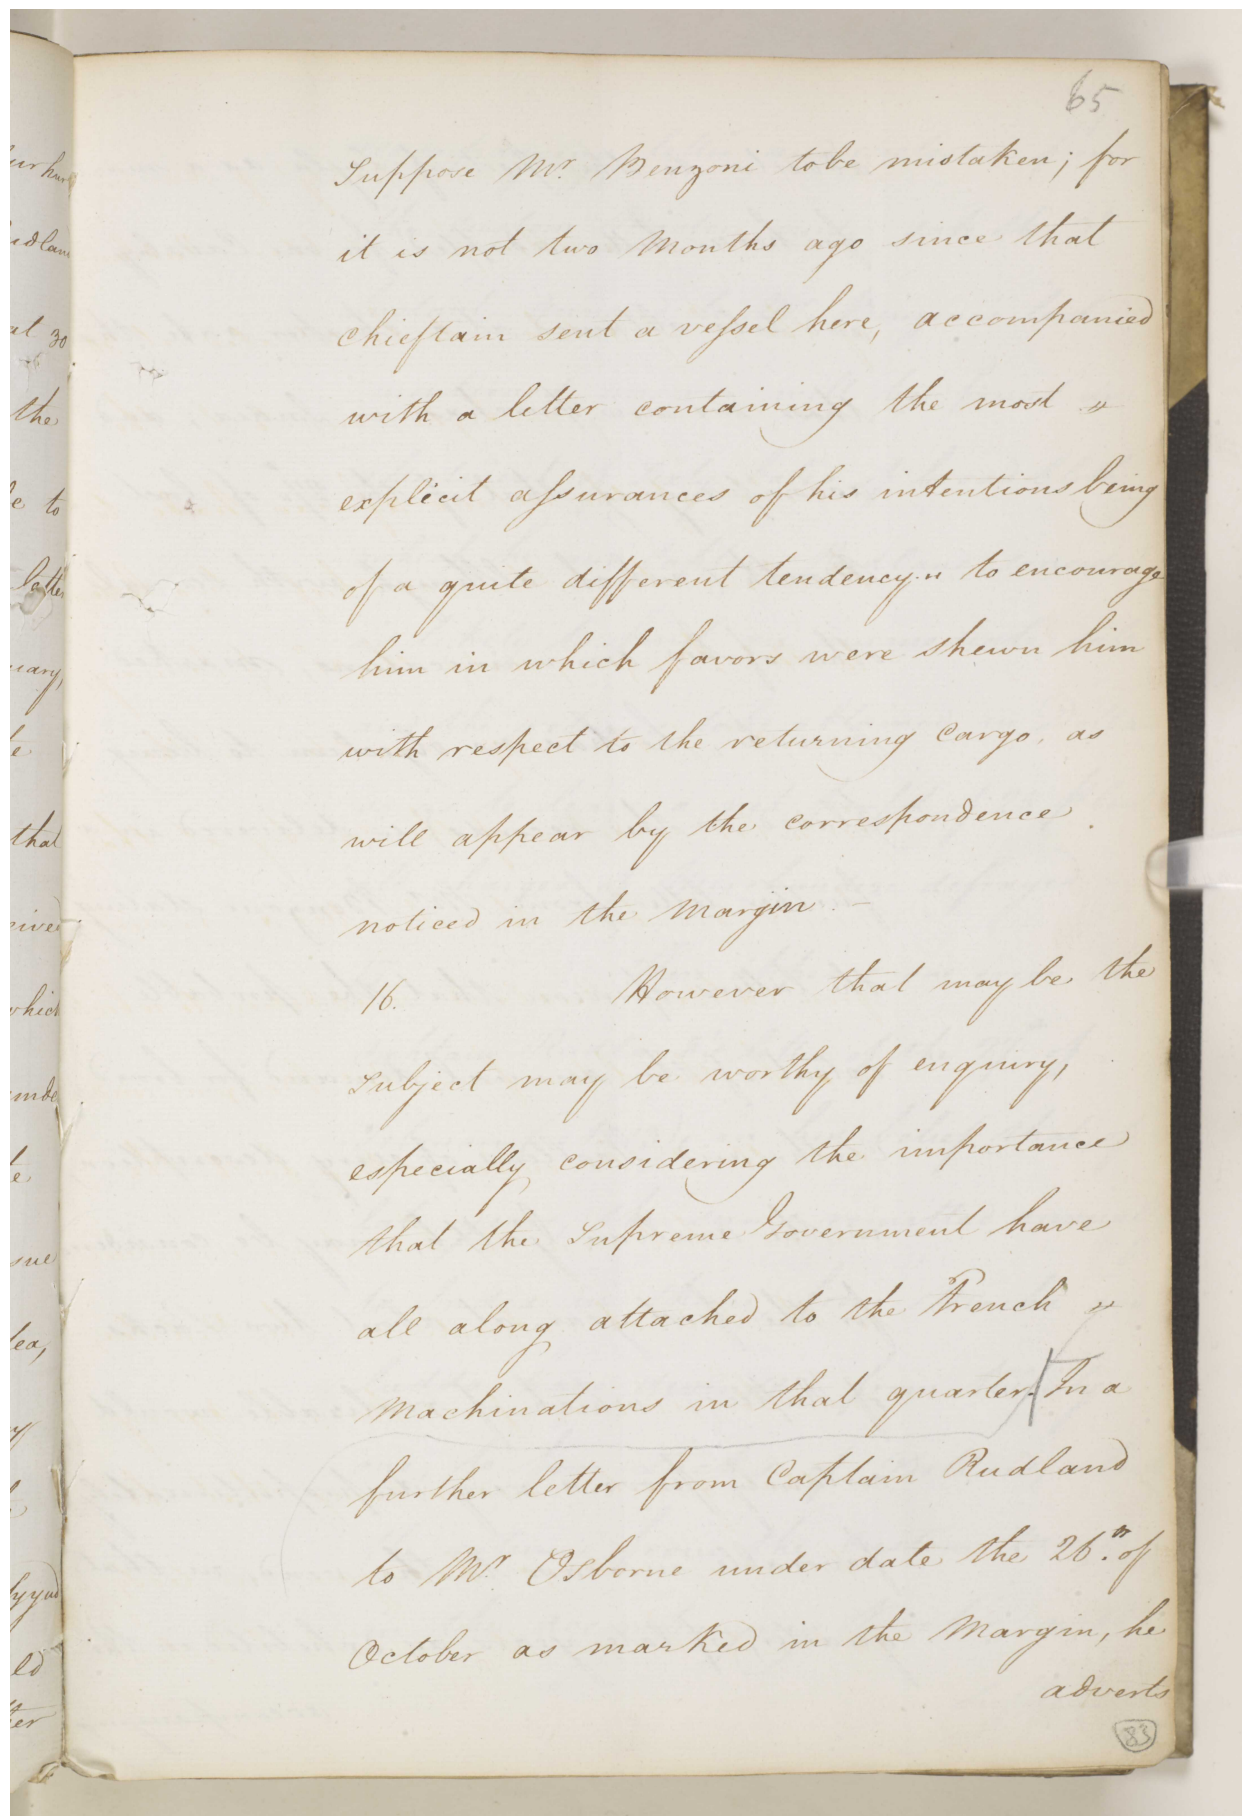 65
Suppose Mr. Benzoni to be mistaken; for
it is not two Months ago since that
chieftain sent a vessel here, accompanied
with a letter containing the most "
explicit assurances of his intentions being
of a quite different tendency." to encourage
him in which favors were shewn him
with respect to the returning Cargo, as
will appear by the correspondence
noticed in the Margin. -
16. However that may be the
Subject may be worthy of enquiry,
especially considering the importance
that the Supreme Government have
all along attached to the French "
Machinations in that quarter. In a
further letter from Captain Rudland
to Mr. Osborne under date the 26.th of
October as marked in the Margin, he
adverts
83